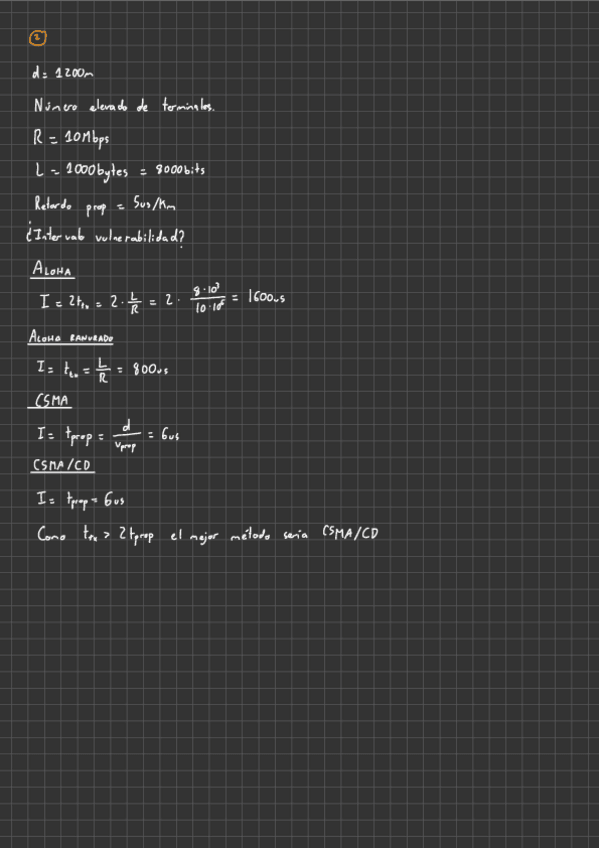 2
d = 1200m
Número elevado de terminales.
R = 10Mbps
L = 1000bytes = 8000bits
Retardo prop = 5us/Km
¿Intervalo vulnerabilidad?
ALOHA
I = 2ttx = 2 · L/R = 2 · 8·10³/10·10⁶ = 1600us
ALOHA RANURADO
I = ttx = L/R = 800us
CSMA
I = tprop = d/vprop = 6us
CSMA/CD
I = tprop = 6us
Como ttx > 2tprop el mejor método seria CSMA/CD